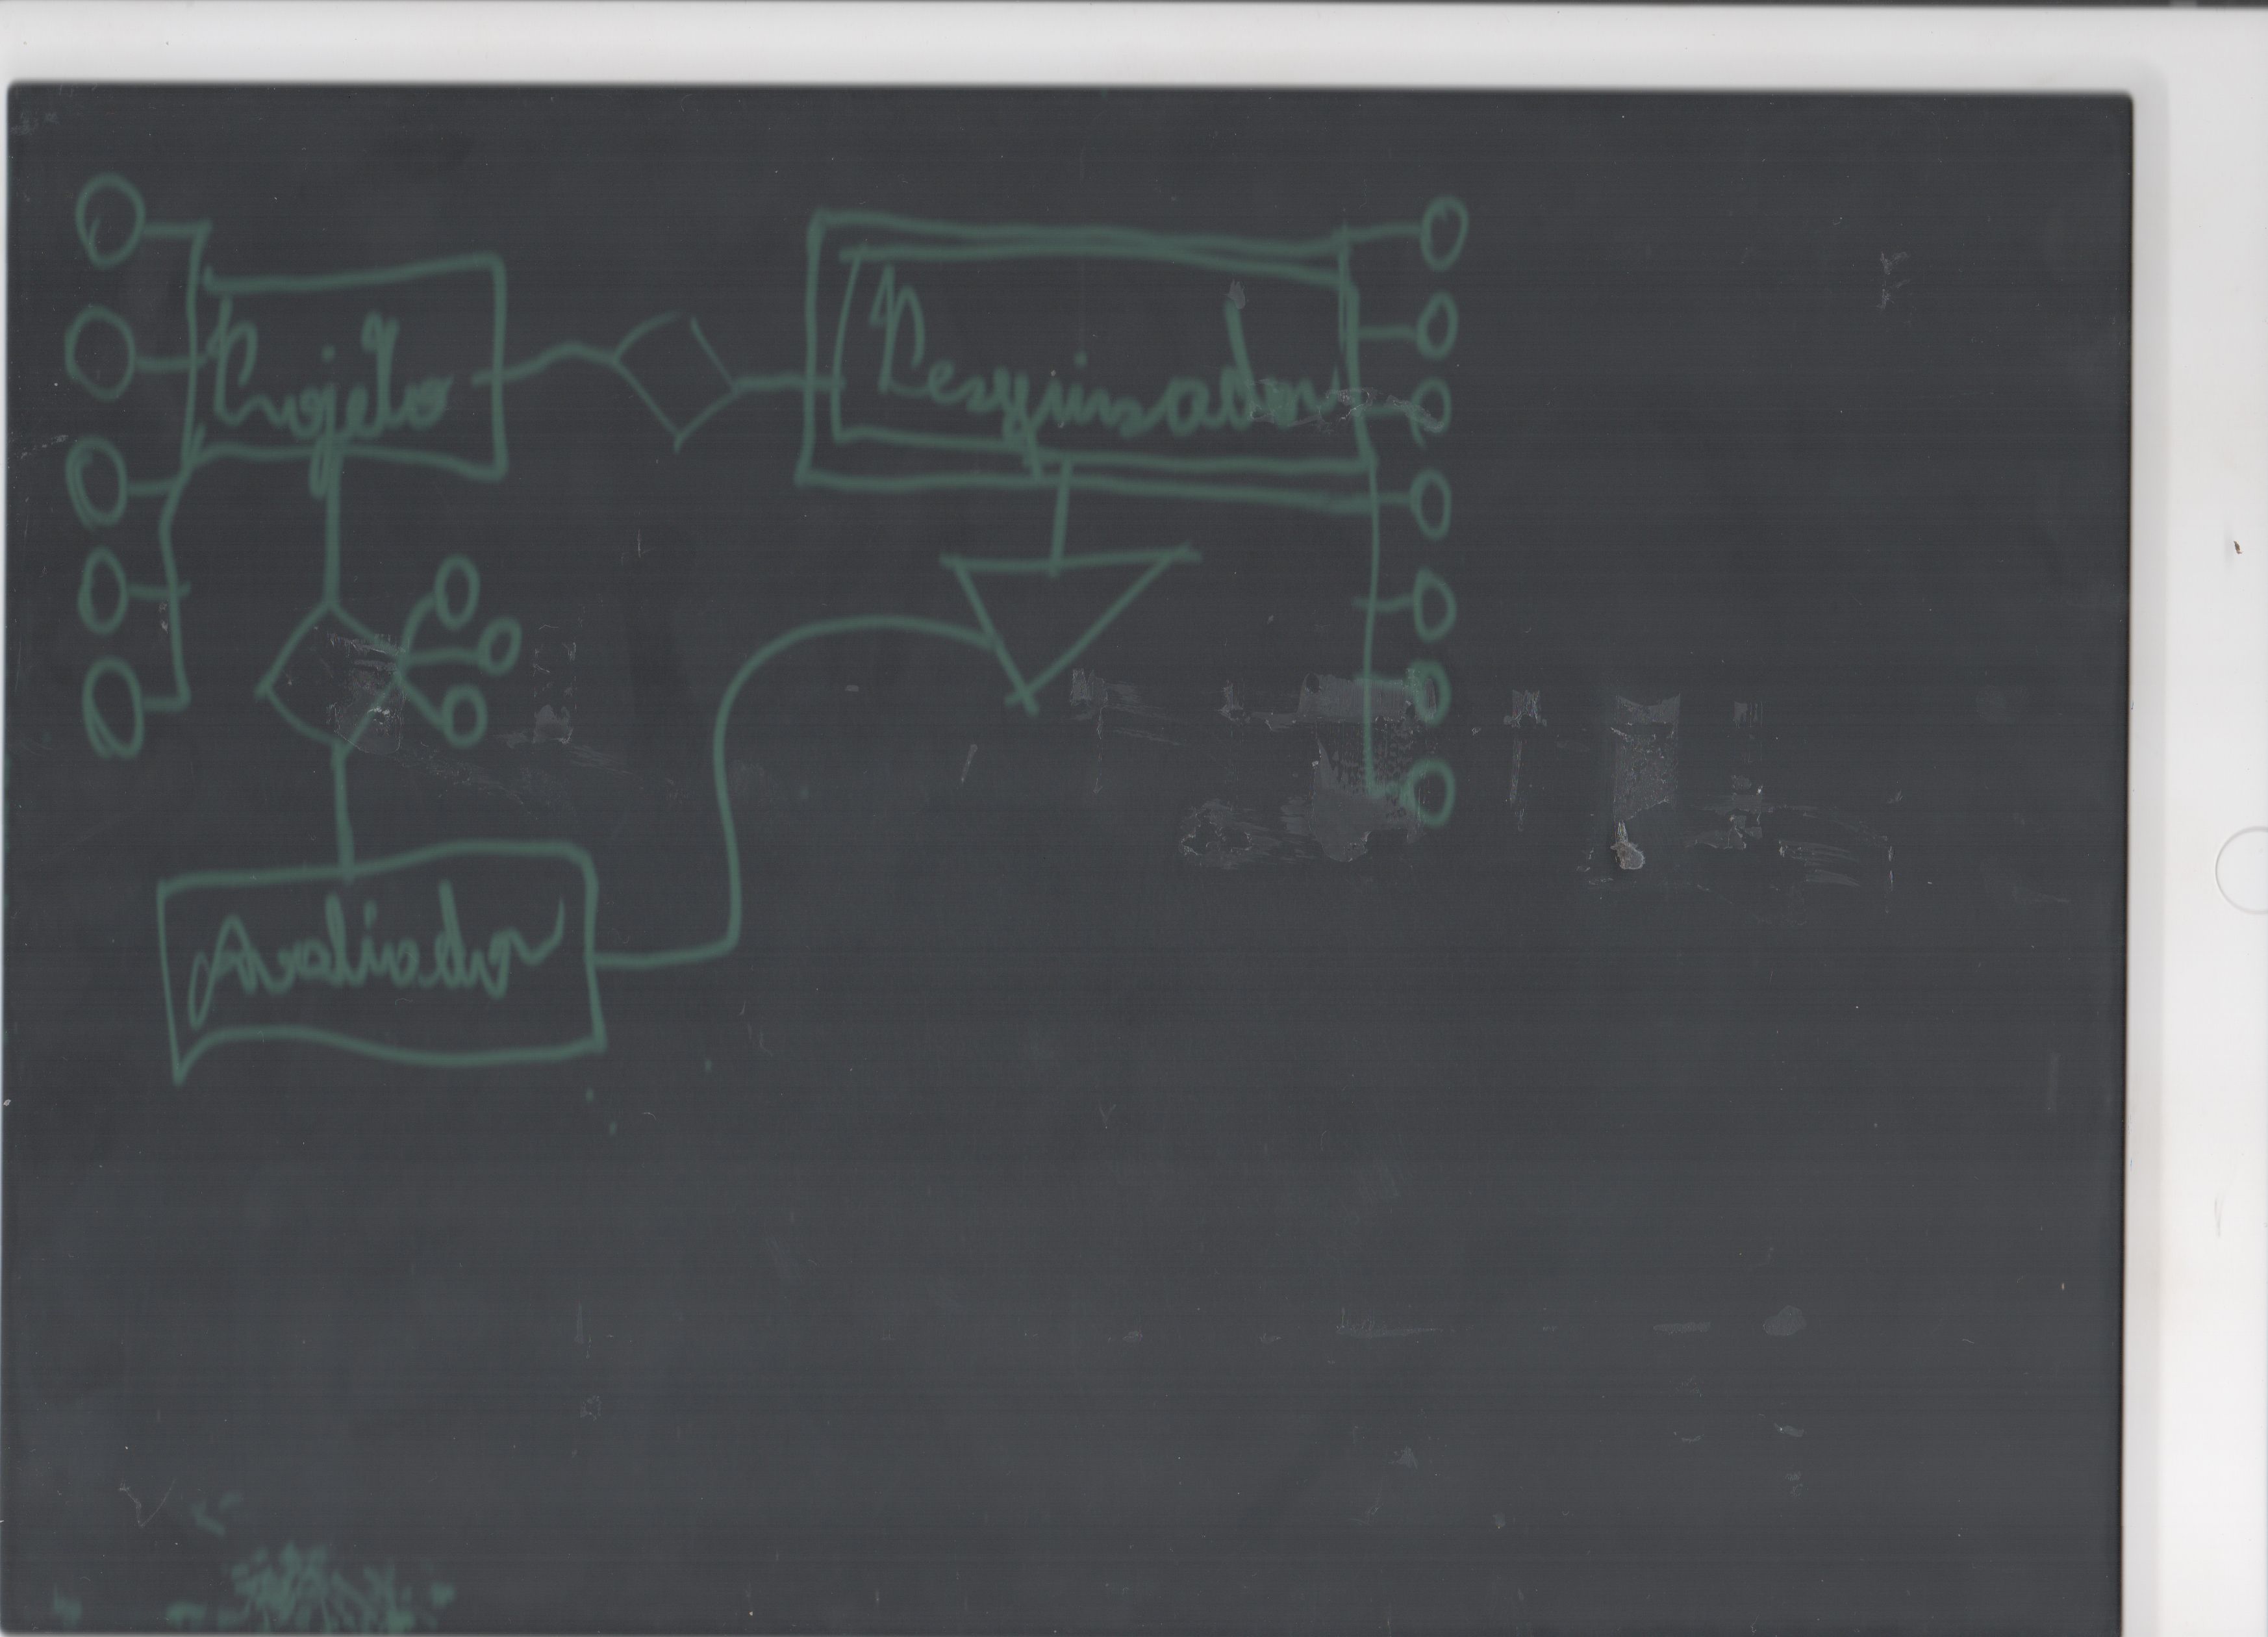 Projeto
Pesquisador
Avaliador